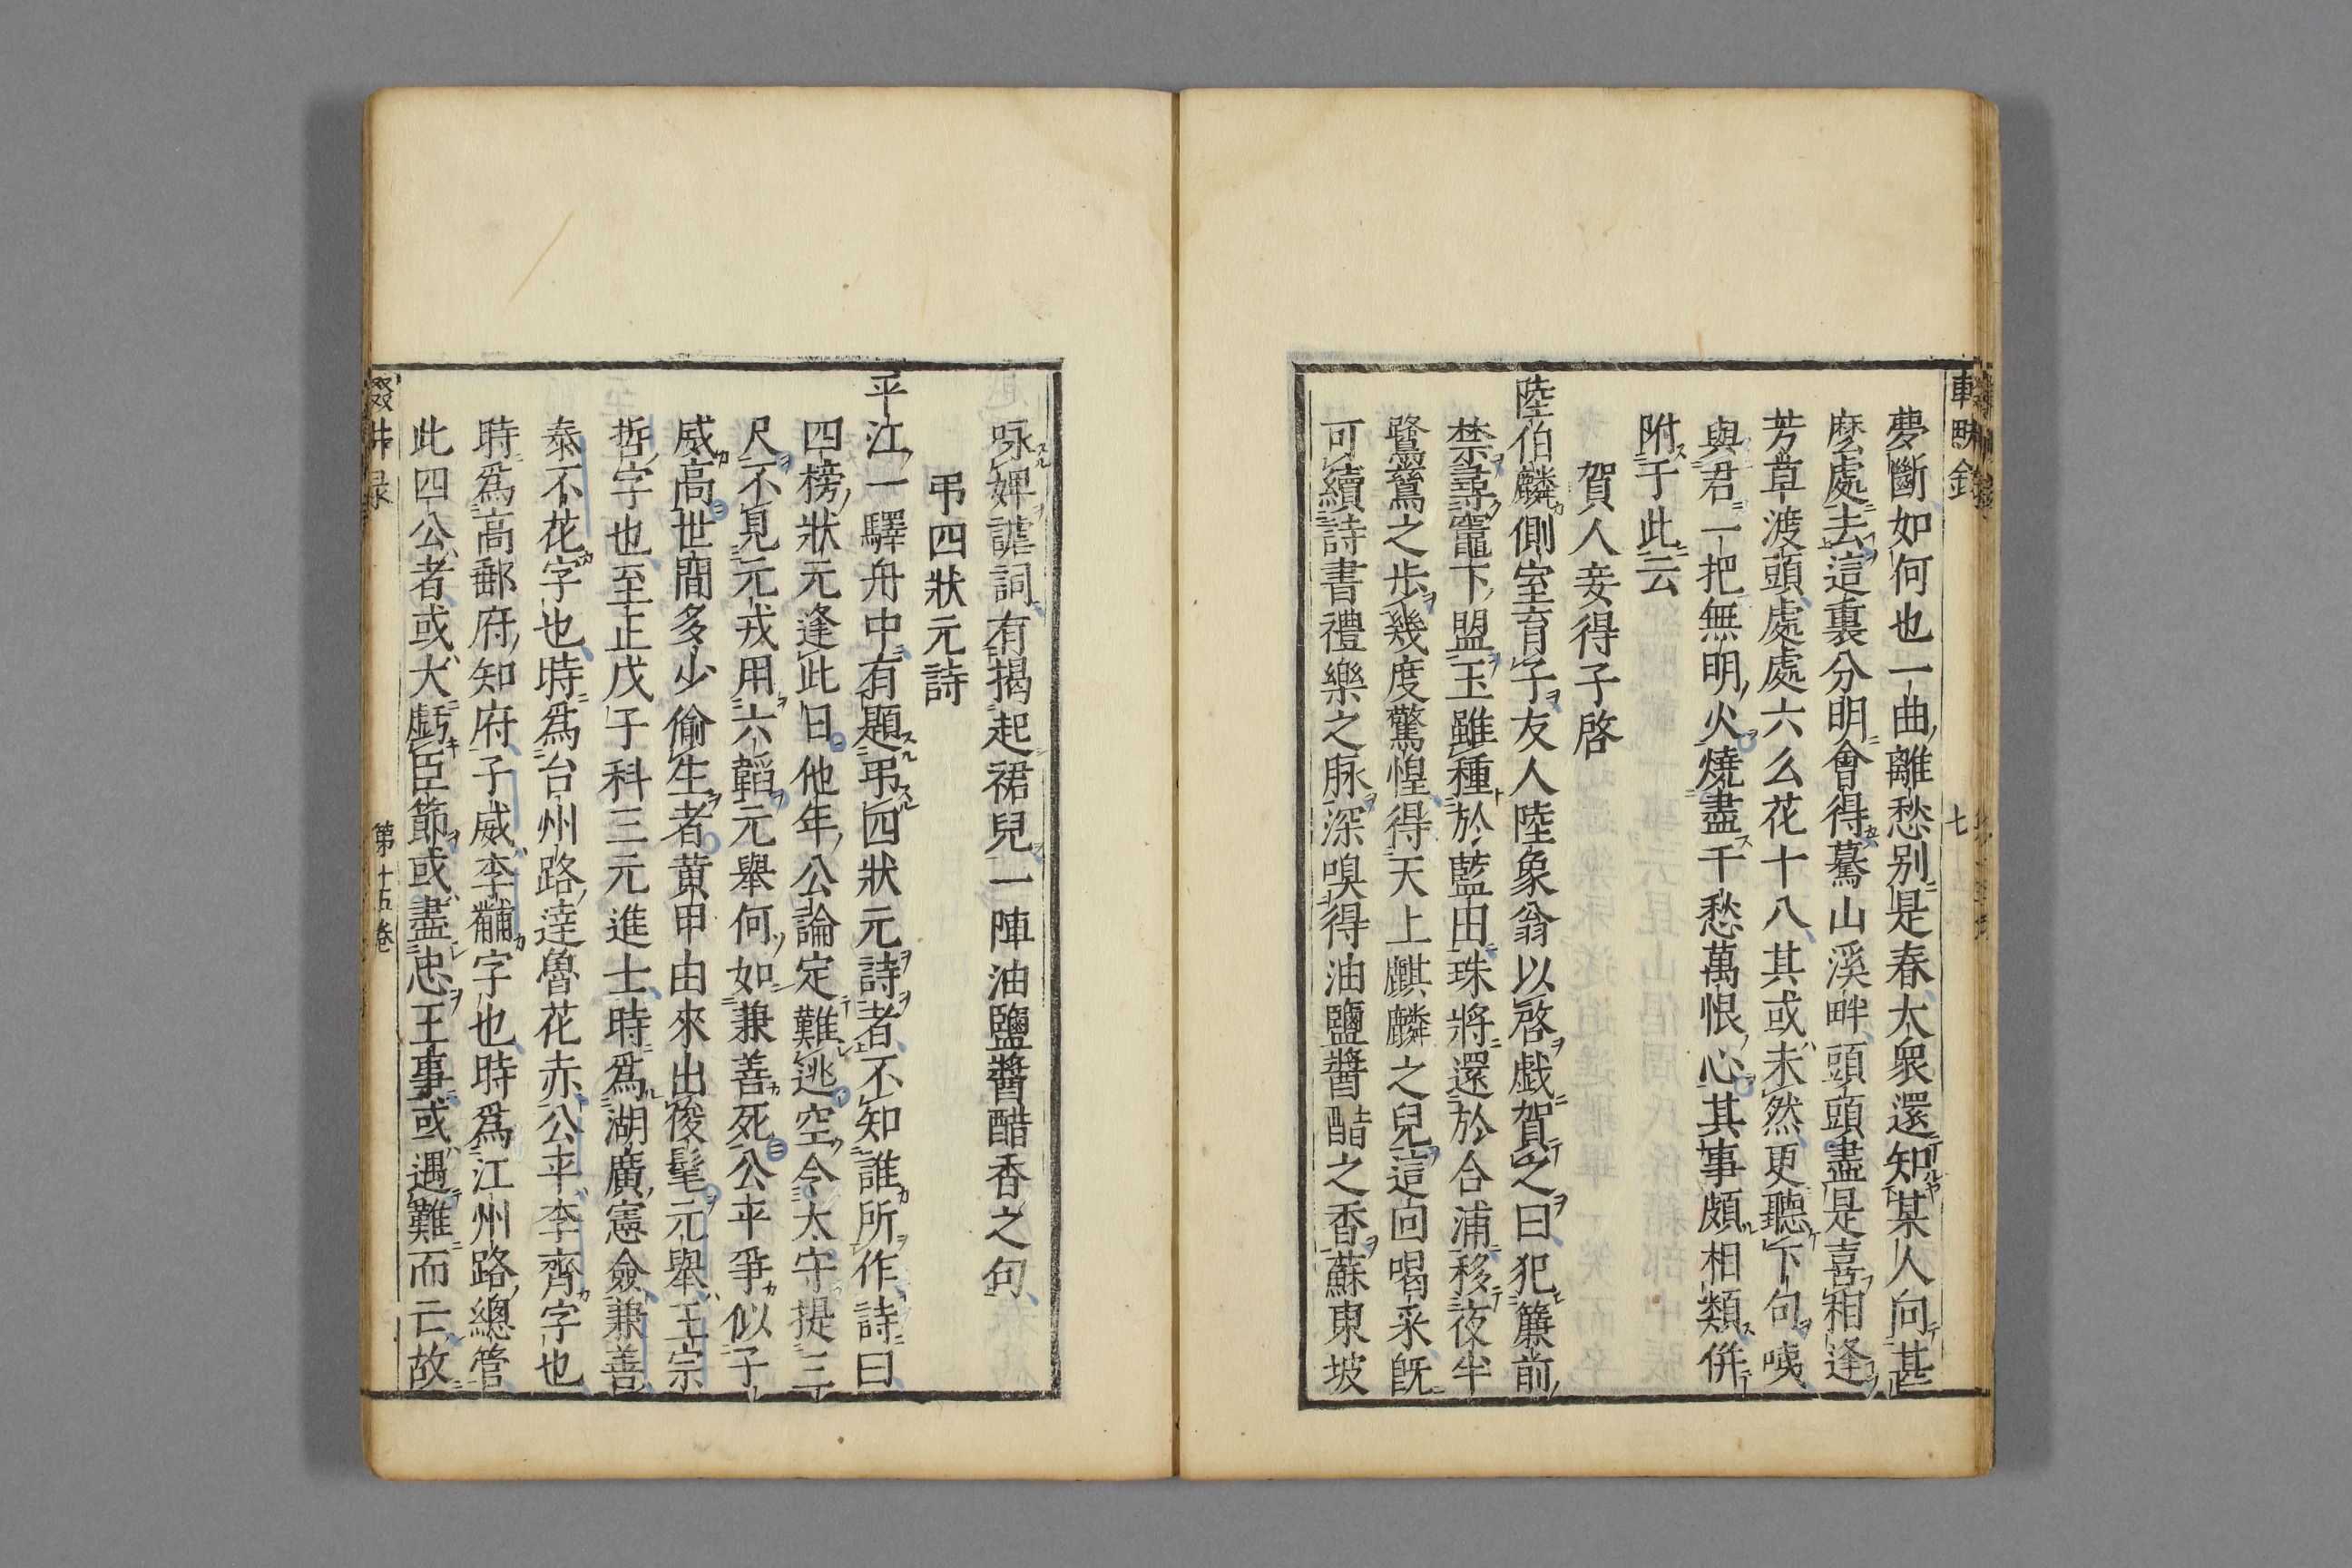 夢斷如何也一曲離愁別是春大衆還知某人向甚
麼處去這裏分明會得驀山溪畔頭頭盡是喜相逢
芳草渡頭處處六么花十八其或未然更聽下句咦
與君一把無明火燒盡千愁萬恨心其事頗相類併
附于此云
賀人妾得子啓
陸伯麟側室育子友人陸象翁以啓戲賀之曰犯簾前
禁尋竈下盟玉雖種於藍田珠將還於合浦移夜半
鷺鷥之步幾度驚惶得天上麒麟之兒這回喝采既
可續詩書禮樂之脉深嗅得油鹽醬醋之香蘇東坡
咏婢謔詞有揭起裙兒一陣油鹽醬醋香之句
弔四狀元詩
平江一驛舟中有題弔四狀元詩者不知誰所作詩曰
四榜狀元逢此日他年公論定難逃空令太守提三
尺不見元戎用六韜元舉何如兼善死公平爭似子
威高世間多少偷生者黃甲由來出俊髦元舉王宗
哲字也至正戊子科三元進士時爲湖廣憲僉兼善
泰不花字也時爲台州路達魯花赤公平李齊字也
時爲高郵府知府子威李黼字也時爲江州路總管
此四公者或大虧臣節或盡忠王事或遇難而亡故
第十五卷
七